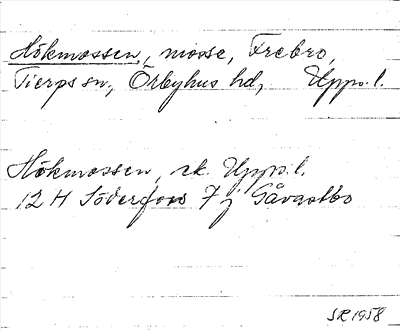 Hökmossen, mosse, Frebro,
Tierps sn, Örbyhus hd, Upps. l.
Hökmossen, ek. Upps. l.
12 H Söderfors 7 j Gåvastbo
SR 1958